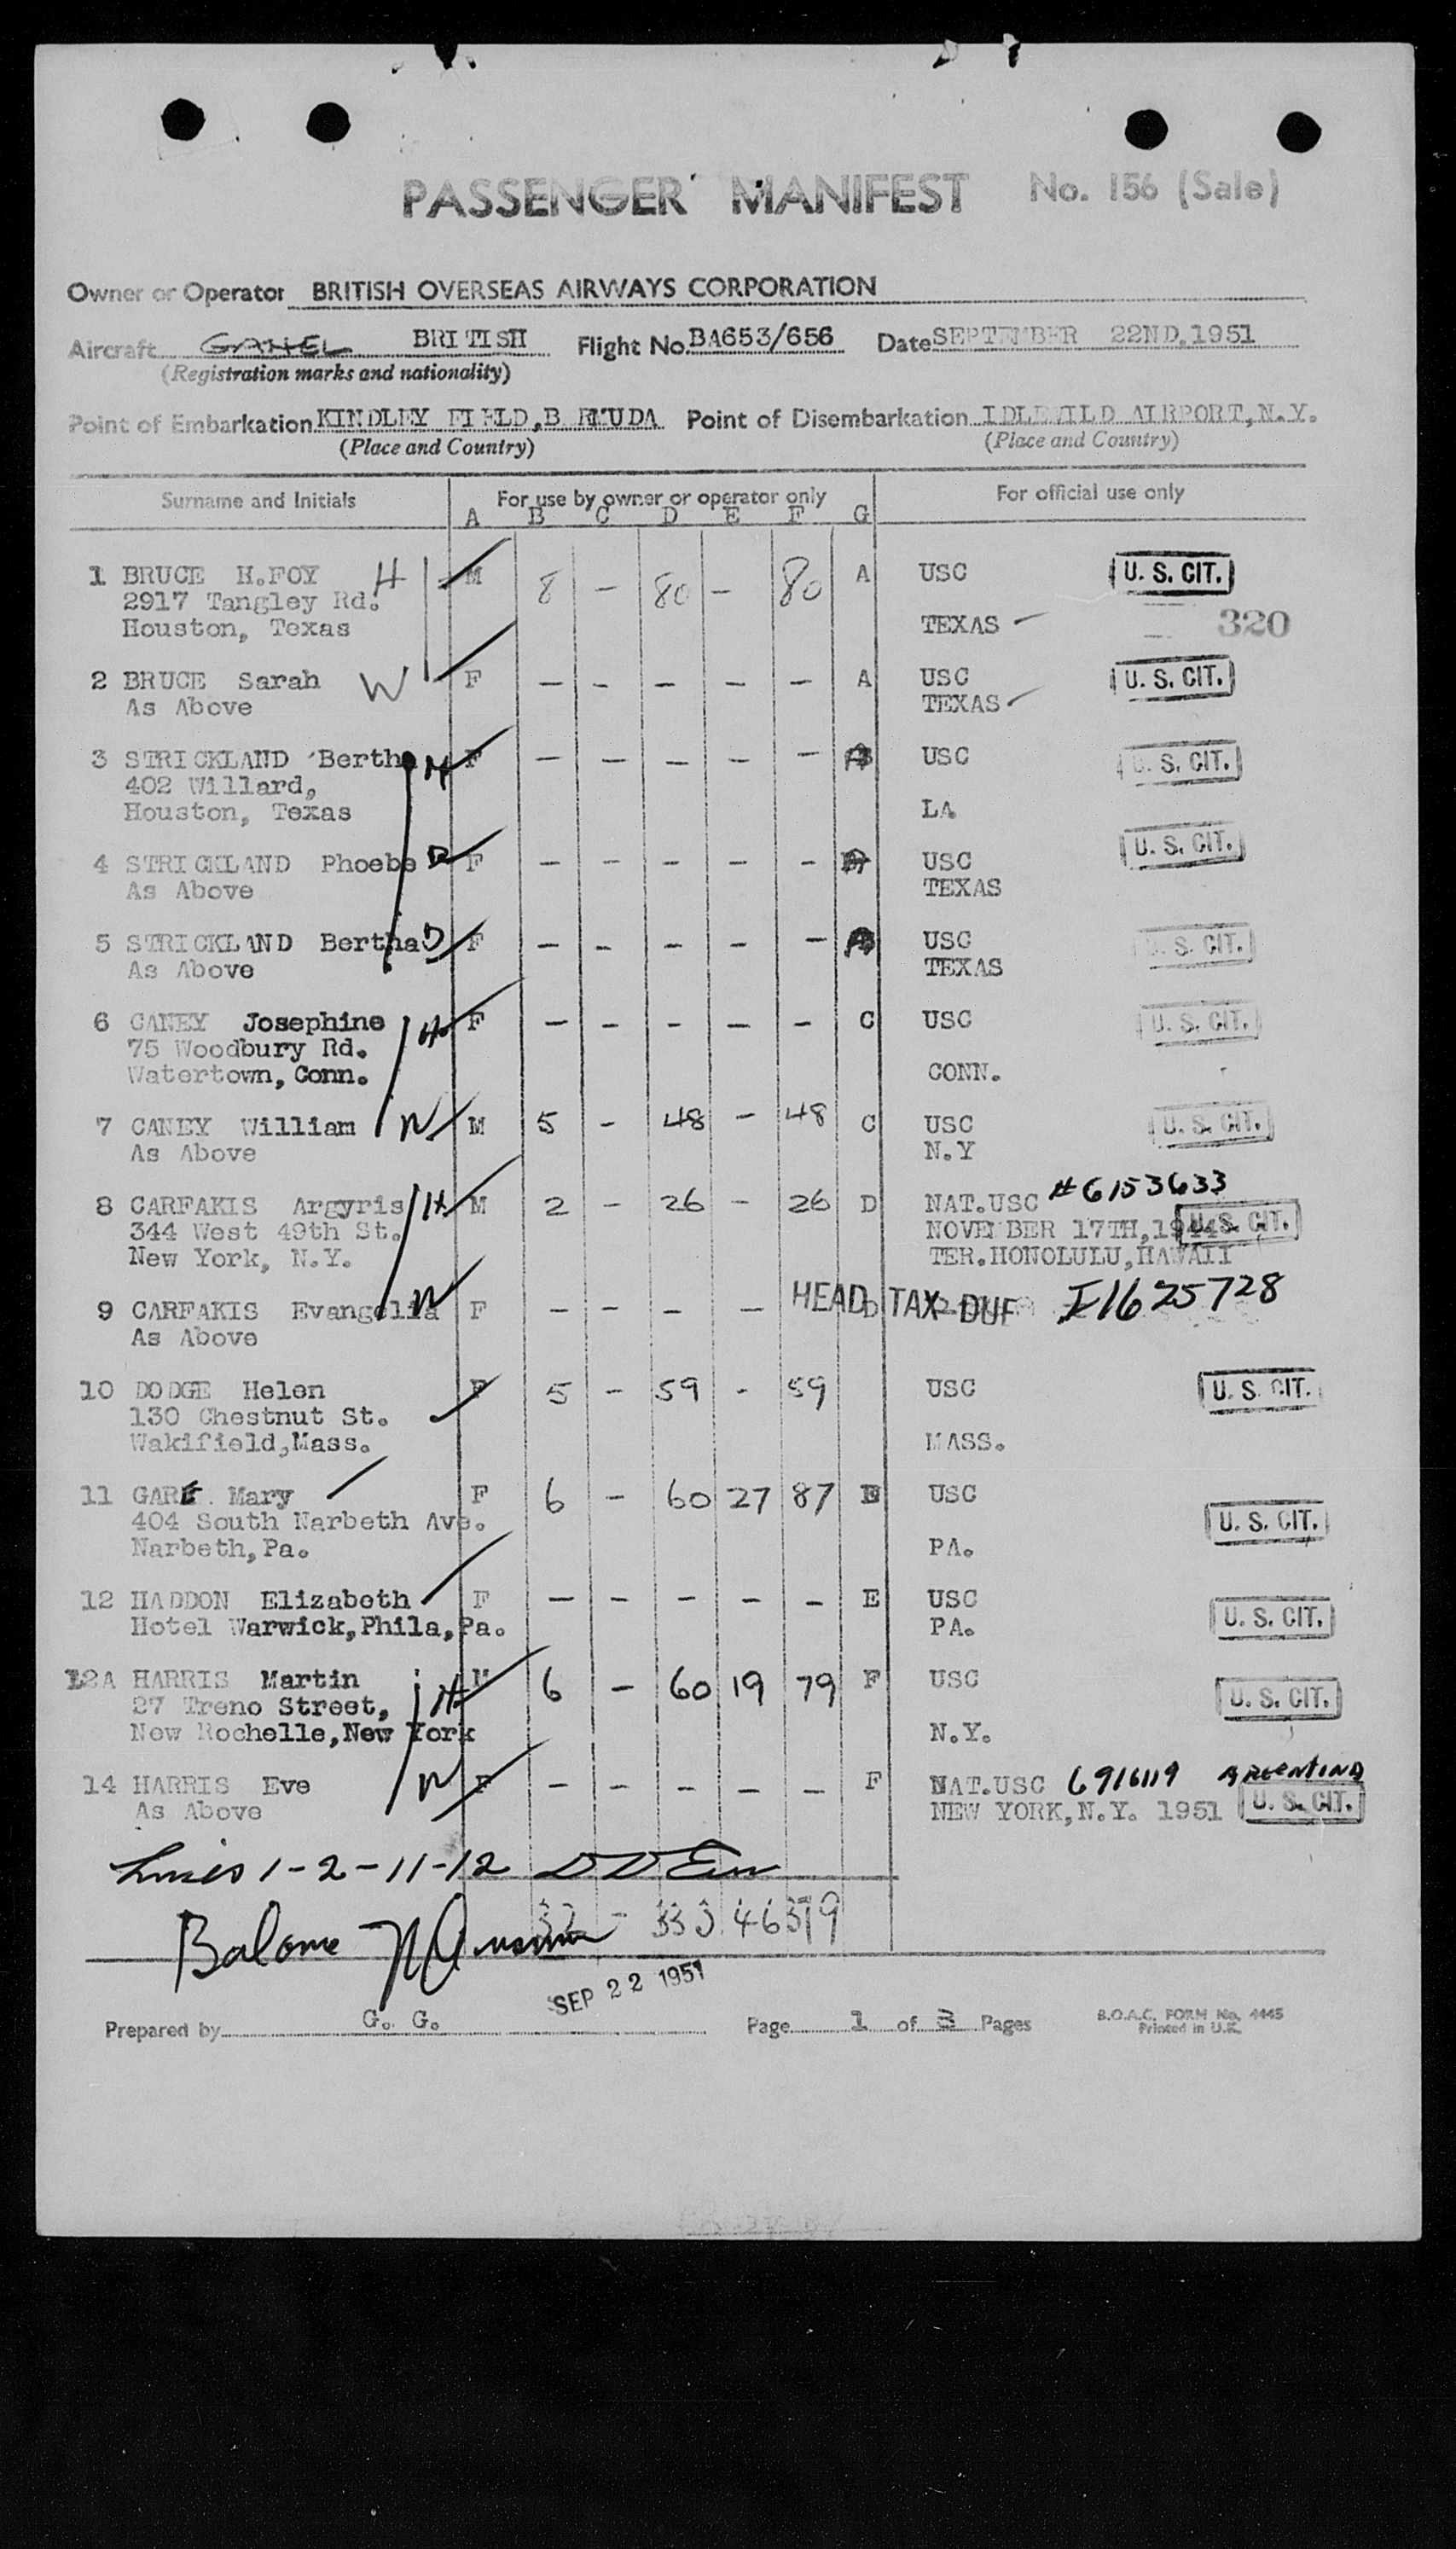 PASSENGER MANIFEST No. 156 (Sale)
Owner or Operator BRITISH OVERSEAS AIRWAYS CORPORATION
Aircraft GAHEL BRITISH Flight No. BA653/656 Date SEPTEMBER 22ND.1951
(Registration marks and nationality)
Point of Embarkation KINDLEY FIELD,B RMUDA Point of Disembarkation IDLEWILD AIRPORT,N.Y.
(Place and Country) (Place and Country)
Surname and Initials For use by owner or operator only For official use only
A B C D E F G
1 BRUCE H.FOY H M 8 - 80 - 80 A USC U. S. CIT.
2917 Tangley Rd.
Houston, Texas TEXAS 320
2 BRUCE Sarah W F - - - - - A USC U. S. CIT.
As Above TEXAS
3 STRICKLAND Bertha M F - - - - - USC U. S. CIT.
402 Willard,
Houston, Texas LA.
4 STRICKLAND Phoebe D F - - - - - USC U. S. CIT.
As Above TEXAS
5 STRICKLAND Bertha D F - - - - - USC U. S. CIT.
As Above TEXAS
6 CANEY Josephine F - - - - - C USC U. S. CIT.
75 Woodbury Rd.
Watertown, Conn. CONN.
7 CANEY William M 5 - 48 - 48 C USC U. S. CIT.
As Above N.Y
8 CARFAKIS Argyris H M 2 - 26 - 26 D NAT.USC #6153633
344 West 49th St. NOVEMBER 17TH,1944 U. S. CIT.
New York, N.Y. TER.HONOLULU,HAWAII
9 CARFAKIS Evangelia W F - - - - HEAD TAX DUE I1625728
As Above
10 DODGE Helen F 5 - 59 - 59 USC U. S. CIT.
130 Chestnut St.
Wakifield,Mass. MASS.
11 GARE. Mary F 6 - 60 27 87 E USC
404 South Narbeth Ave. U. S. CIT.
Narbeth,Pa. PA.
12 HADDON Elizabeth F - - - - - E USC
Hotel Warwick,Phila,Pa. PA. U. S. CIT.
12A HARRIS Martin H M 6 - 60 19 79 F USC
27 Treno Street, U. S. CIT.
New Rochelle,New York N.Y.
14 HARRIS Eve W F - - - - - F NAT.USC 6916119 ARGENTINA
As Above NEW YORK,N.Y. 1951 U. S. CIT.
Lines 1-2-11-12
Balance 32 - 333 46 379
SEP 22 1951
Prepared by G. G. Page 1 of 3 Pages B.O.A.C. FORM No. 4445
Printed in U.K.